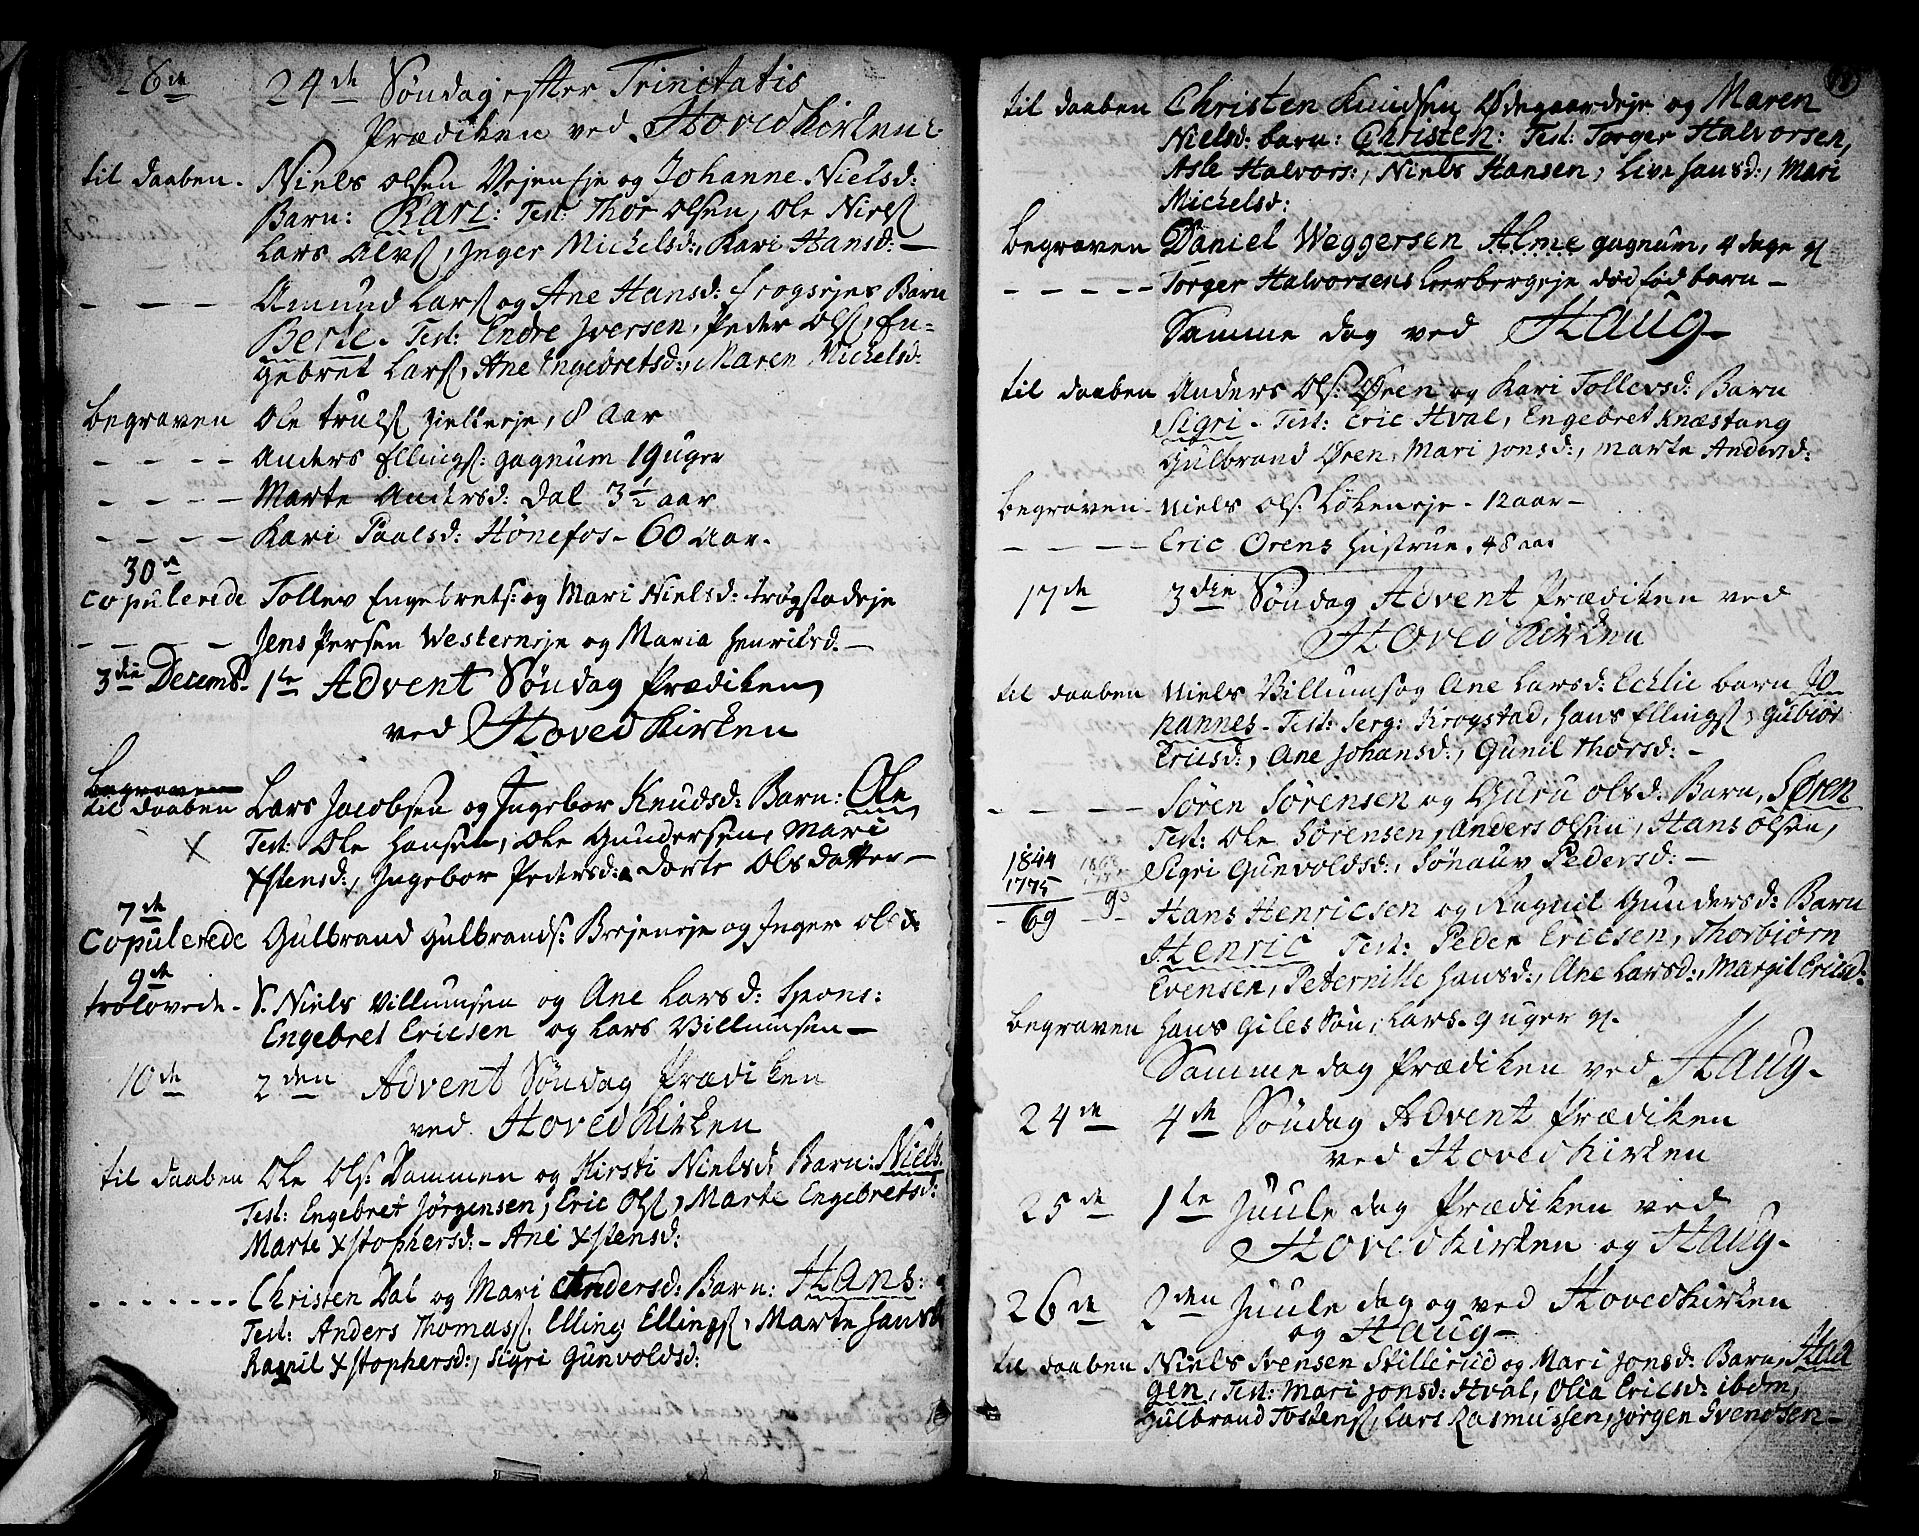 26de 24de Søndag efter Trinitatis
Prædiken ved HovedKirken
til daaben. Niels Olsen Vejeneje og Johanne Nielsd:
Barn: Kari: Test: Thor Olsen, Ole Niels
Lars Alvs, Inger Michelsd:, Kari Hansd: —
— — — Amund Lars og Ane Hansd: Barn
Berte. Test: Endre Iversen, Peder Ols, En-
gebret Lars, Ane Ingebretsd:, Maren Michelsd:
begraven Ole truls, 8 Aar
— — — — Anders Ellings: gagnum 19 uger
— — — — Marte Andersd: Dal 3½ aar
— — — — Kari Paalsd: Hønefos – 60 Aar.
30te
Copulerede Tollev Engebrets: og Mari Nielsd: trøgstadeje
— — — Jens Persen Westerneje og Maria Henriksd. —
3die Decemb. 1te Advent Søndag Prædiken
ved HovedKirken
begraven
til daaben Lars Jacobsen og Ingebor Knudsd: Barn: Ole
X Test: Ole Hansen, Ole Gundersen, Mari
Xstensd:, Ingebor Pedersd: Dorte Olsdatter —
7de
Copulerede Gulbrand Gulbrands: og Inger Ols
9de
trolovede – S. Niels Villumsen og Ane Larsd: Spons:
Engebret Ericsen og Lars Villumsen —
10de 2den Advent Søndag Prædiken
ved HovedKirken
til daaben Ole Ols: Dammen og Kirsti Nielsd: Barn: Niels.
Test: Engebret Jørgensen, Eric Ols, Marte Engebretsd:
Marte Xstophersd: – Ane Xstensd:
- - - - - - - Christen Dal og Mari Andersd: Barn: Hans:
Test: Anders Thomas. Elling Ellings, Marte Hansd
Ragnil Xstophersd:, Sigri Gunvoldsd:
til daaben Christen Knudsen Ødegaardeje og Maren
Nielsd: barn: Christen: Test: Torger Halvorsen,
Asle Halvors:, Niels Hansen, Live Hansd:, Mari
Michelsd:
begraven Daniel Weggersen Alme gagnum, 4 dage gl
— — — — — Torger Halvorsens Leerbergeje død fød barn –
Samme dag ved Haug –
til daaben Anders Ols: Øren og Kari Tollevsd: Barn
Sigri – Test: Eric Hval, Engebret Knæstang
Gulbrand Øren, Mari Jonsd:, Marte Andersd:
begraven – Niels Ols: Løkeneje – 12 aar –
— — — — Eric Ørens hustrue. 48 aar
17de 3die Søndag Advent Prædiken ved
HovedKirken
til daaben Niels Villums og Ane Larsd: Ecklie barn Jo
hannes – Test: Serg: Krogstad, Hans Ellings, Gubiør
Ericsd:, Ane Johansd:, Gunil Thorsd: –
— — — — Søren Sørensen og Guru Olsd: Barn, Søren
Test: Ole Sørensen, Anders Olsen, Hans Olsen,
1844 Sigri Gunvoldsd:, Sønauv Pedersd: –
1775
– 69 Hans Henricsen og Ragnil Gundersd: Barn
Henric Test: Peder Ericsen, Thorbiørn
Evensen, Peternille Hansd:, Ane Larsd:, Margit Ericsd:
begraven Hans Giles Søn, Lars. 9 uger gl.
Samme dag Prædiken ved Haug –
24de 4de Søndag Advent Prædiken
ved HovedKirken
25de 1te Juule dag Prædiken ved
HovedKirken og Haug –
26de 2den Juule dag og ved HovedKirken
og Haug –
til daaben Niels Svensen Stillerud og Mari Jonsd: Barn, Haa
gen, Test: Mari Jonsd: Hval, Olia Ericsd: ibdm,
Gulbrand Tostens, Lars Rasmussen, Jørgen Svendsen –